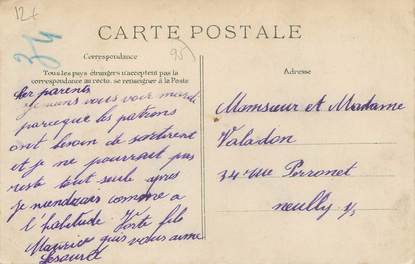 12+
34
95
CARTE POSTALE
Correspondance
Tous les pays étrangers n'acceptent pas la
correspondance au recto, se renseigner à la Poste
Adresse
Cher parents
Je viens vous voir mardi
parceque les patrons
ont besoin de sortirent
et je ne pourrait pas
reste tout seule après
je viendrais comme a
l'habitude. Votre fils
Maurice qui vous aime
Monsieur et Madame
Valadon
34 rue Perronet
neuilly s/